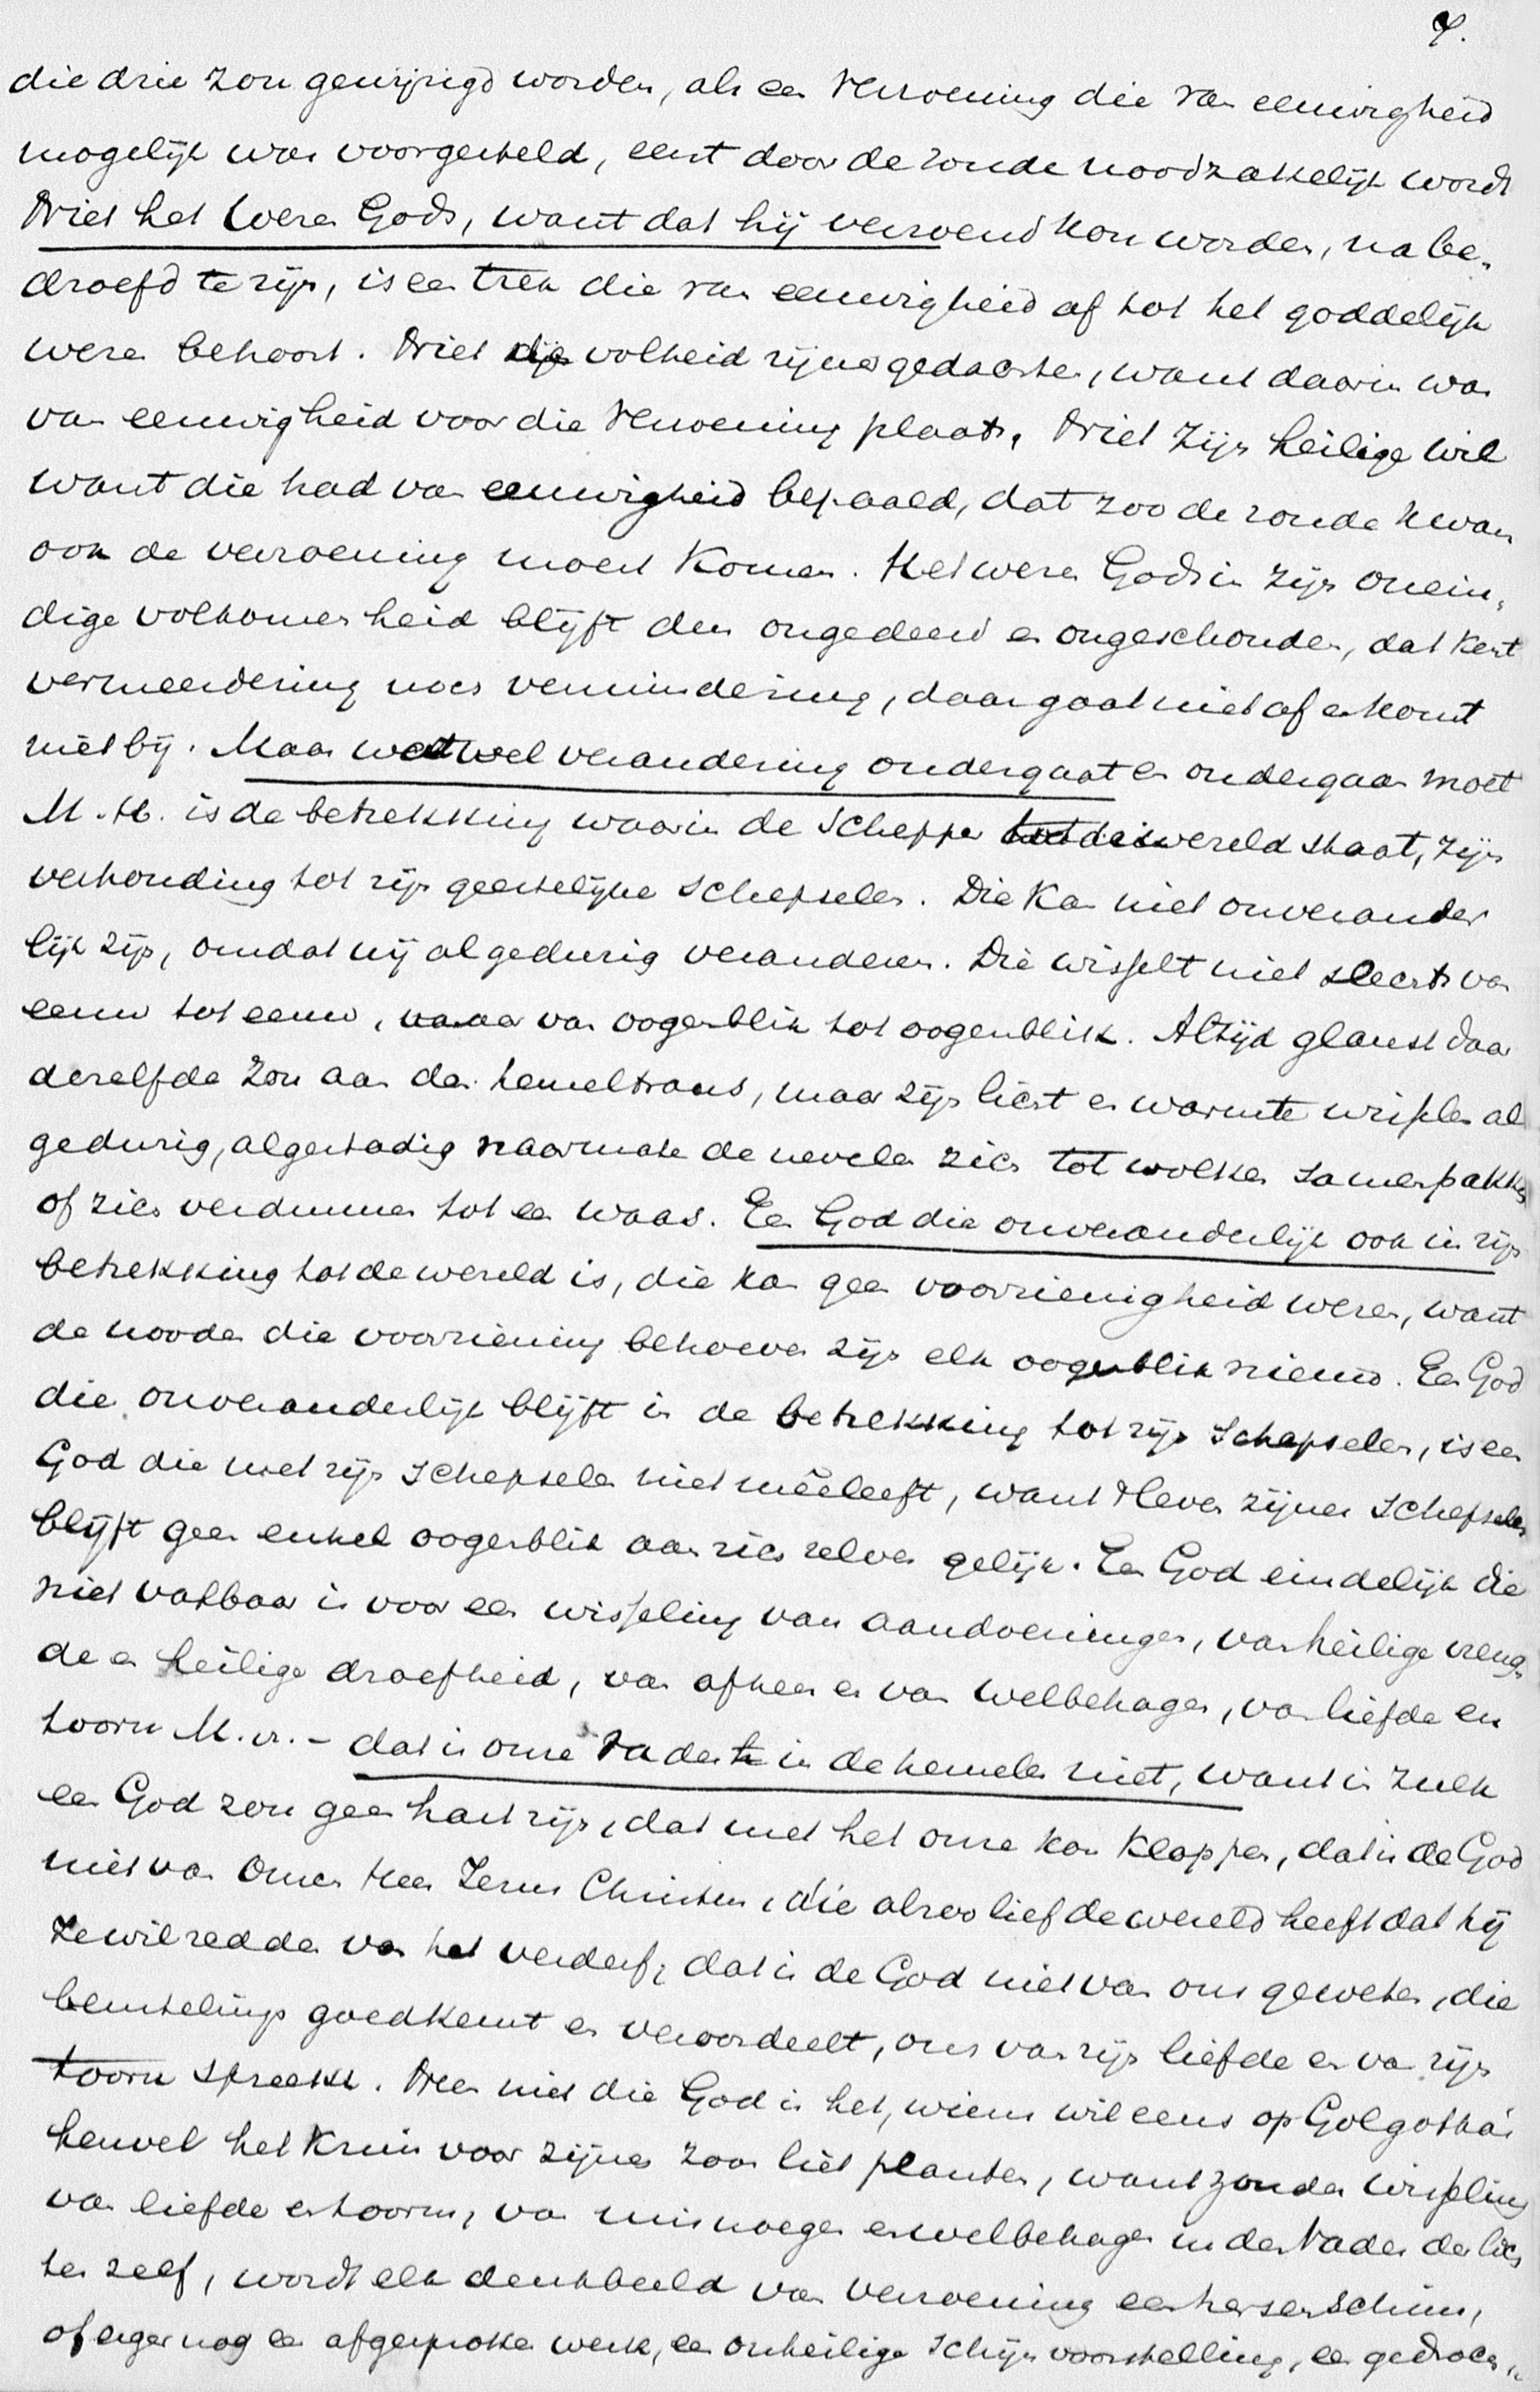 7.
die drie zou gewijzigd worden, als een verzoening die van eeuwigheid
mogelijk was voorgesteld, eerst door de zonde noodzakelijk wordt
Niet het wezen Gods, want dat hij verzoend kon worden, na be-
droefd te zijn, is een trek die van eeuwigheid af tot het goddelijk
wezen behoort. Niet de volheid zijner gedachten, want daarin was
van eeuwigheid voor die verzoening plaats, Niet zijn heilige wil
want die had van eeuwigheid bepaald, dat zoo de zonde kwam
ook de verzoening moest komen. Het wezen Gods in zijn onein-
dige volkomenheid blijft dus ongedeerd en ongeschonden, dat kent
vermeerdering noch vermindering, daar gaat niet af en komt
niet bij. Maar wat wel verandering ondergaat en ondergaan moet
M. H. is de betrekking waarin de Schepper tot de wereld staat, zijn
verhouding tot zijn geestelijke schepselen. Die kan niet onverander
lijk zijn, omdat wij al gedurig veranderen. Die wisselt niet slechts van
eeuw tot eeuw, maar van oogenblik tot oogenblik. Altijd glanst daar
dezelfde Zon aan den hemeltrans, maar zijn licht en warmte wisselen al
gedurig, algestadig naarmate de nevelen zich tot wolken samenpakken
of zich verdunnen tot een waas. Een God die onveranderlijk ook in zijn
betrekking tot de wereld is, die kan geen voorzienigheid wezen, want
de nooden die voorziening behoeven zijn elk oogenblik nieuw. Een God
die onveranderlijk blijft in de betrekking tot zijn Schepselen, is een
God die met zijn schepselen niet meêleeft, want 't leven zijner schepselen
blijft geen enkel oogenblik aan zich zelven gelijk. Een God eindelijk die
niet vatbaar is voor een wisseling van aandoeningen, van heilige vreug-
de en heilige droefheid, van afkeer en van welbehagen, van liefde en
toorn M. v. - dat is onze Vader in de hemelen niet, want in zulk
een God zou geen hart zijn, dat met het onze kan kloppen, dat is de God
niet van Onzen Heer Jezus Christus, die alzoo lief de wereld heeft dat hij
ze wil redden van het verderf, dat is de God niet van ons geweten, die
beurtelings goedkeurt en veroordeelt, ons van zijn liefde en van zijn
toorn spreekt. Neen niet die God is het, wiens wil eens op Golgotha's
heuvel het Kruis voor zijnen Zoon liet planten, want zonder wisseling
van liefde en toorn, van misnoegen en welbehagen in den Vader der lich
ten zelf, wordt elk denkbeeld van verzoening een hersenschim,
of erger nog een afgesproken werk, een onheilige schijnvoorstelling, een gedroch-